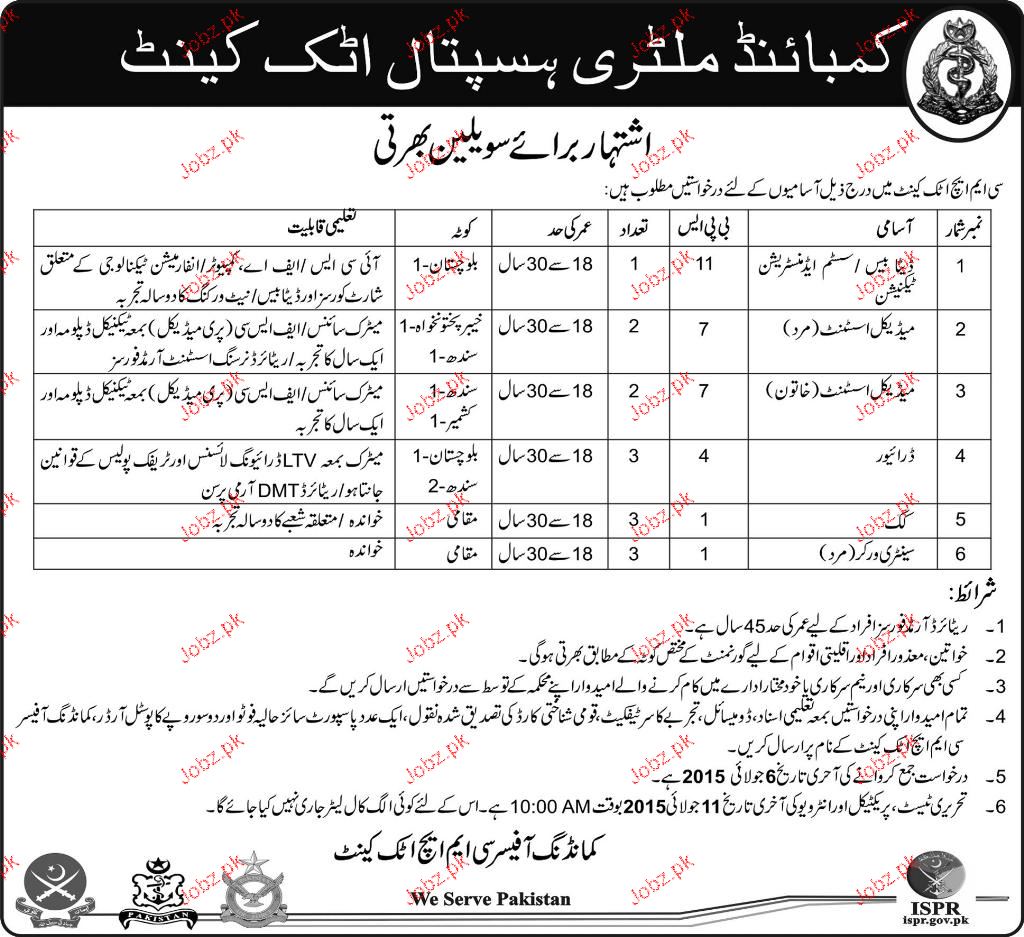 کمبائنڈ ملٹری ہسپتال اٹک کینٹ
اشتہار برائے سویلین بھرتی
سی ایم ایچ اٹک کینٹ میں درج ذیل آسامیوں کے لئے درخواستیں مطلوب ہیں:
نمبر شمار آسامی بی پی ایس تعداد عمر کی حد کوٹہ تعلیمی قابلیت
1 ڈیٹا بیس/سسٹم ایڈمنسٹریشن 11 1 18 سے 30 سال بلوچستان-1 آئی سی ایس/ایف اے، کمپیوٹر/انفارمیشن ٹیکنالوجی کے متعلق
ٹیکنیشن شارٹ کورسز اور ڈیٹا بیس/نیٹ ورکنگ کا دو سالہ تجربہ
2 میڈیکل اسسٹنٹ (مرد) 7 2 18 سے 30 سال خیبر پختونخواہ-1 میٹرک سائنس/ایف ایس سی (پری میڈیکل) بمعہ ٹیکنیکل ڈپلومہ اور
سندھ-1 ایک سال کا تجربہ/ریٹائرڈ نرسنگ اسسٹنٹ آرمڈ فورسز
3 میڈیکل اسسٹنٹ (خاتون) 7 2 18 سے 30 سال سندھ-1 میٹرک سائنس/ایف ایس سی (پری میڈیکل) بمعہ ٹیکنیکل ڈپلومہ اور
کشمیر-1 ایک سال کا تجربہ
4 ڈرائیور 4 3 18 سے 30 سال بلوچستان-1 میٹرک بمعہ LTV ڈرائیونگ لائسنس اور ٹریفک پولیس کے قوانین
سندھ-2 جانتا ہو/ریٹائرڈ DMT آرمی پرسن
5 کک 1 3 18 سے 30 سال مقامی خواندہ/متعلقہ شعبے کا دو سالہ تجربہ
6 سینٹری ورکر (مرد) 1 3 18 سے 30 سال مقامی خواندہ
شرائط:
1۔ ریٹائرڈ آرمڈ فورسز افراد کے لیے عمر کی حد 45 سال ہے۔
2۔ خواتین، معذور افراد اور اقلیتی اقوام کے لیے گورنمنٹ کے مختص کوٹہ کے مطابق بھرتی ہوگی۔
3۔ کسی بھی سرکاری اور نیم سرکاری یا خود مختار ادارے میں کام کرنے والے امیدوار اپنے محکمہ کے توسط سے درخواستیں ارسال کریں گے۔
4۔ تمام امیدوار اپنی درخواستیں بمعہ تعلیمی اسناد، ڈومیسائل، تجربے کا سرٹیفکیٹ، قومی شناختی کارڈ کی تصدیق شدہ نقول، ایک عدد پاسپورٹ سائز حالیہ فوٹو اور دو سو روپے کا پوسٹل آرڈر، کمانڈنگ آفیسر
سی ایم ایچ اٹک کینٹ کے نام پر ارسال کریں۔
5۔ درخواست جمع کروانے کی آخری تاریخ 6 جولائی 2015 ہے۔
6۔ تحریری ٹیسٹ، پریکٹیکل اور انٹرویو کی آخری تاریخ 11 جولائی 2015 بوقت 10:00 AM ہے۔ اس کے لئے کوئی الگ کال لیٹر جاری نہیں کیا جائے گا۔
کمانڈنگ آفیسر سی ایم ایچ اٹک کینٹ
We Serve Pakistan
PAKISTAN
ISPR
ispr.gov.pk
Jobz.pk